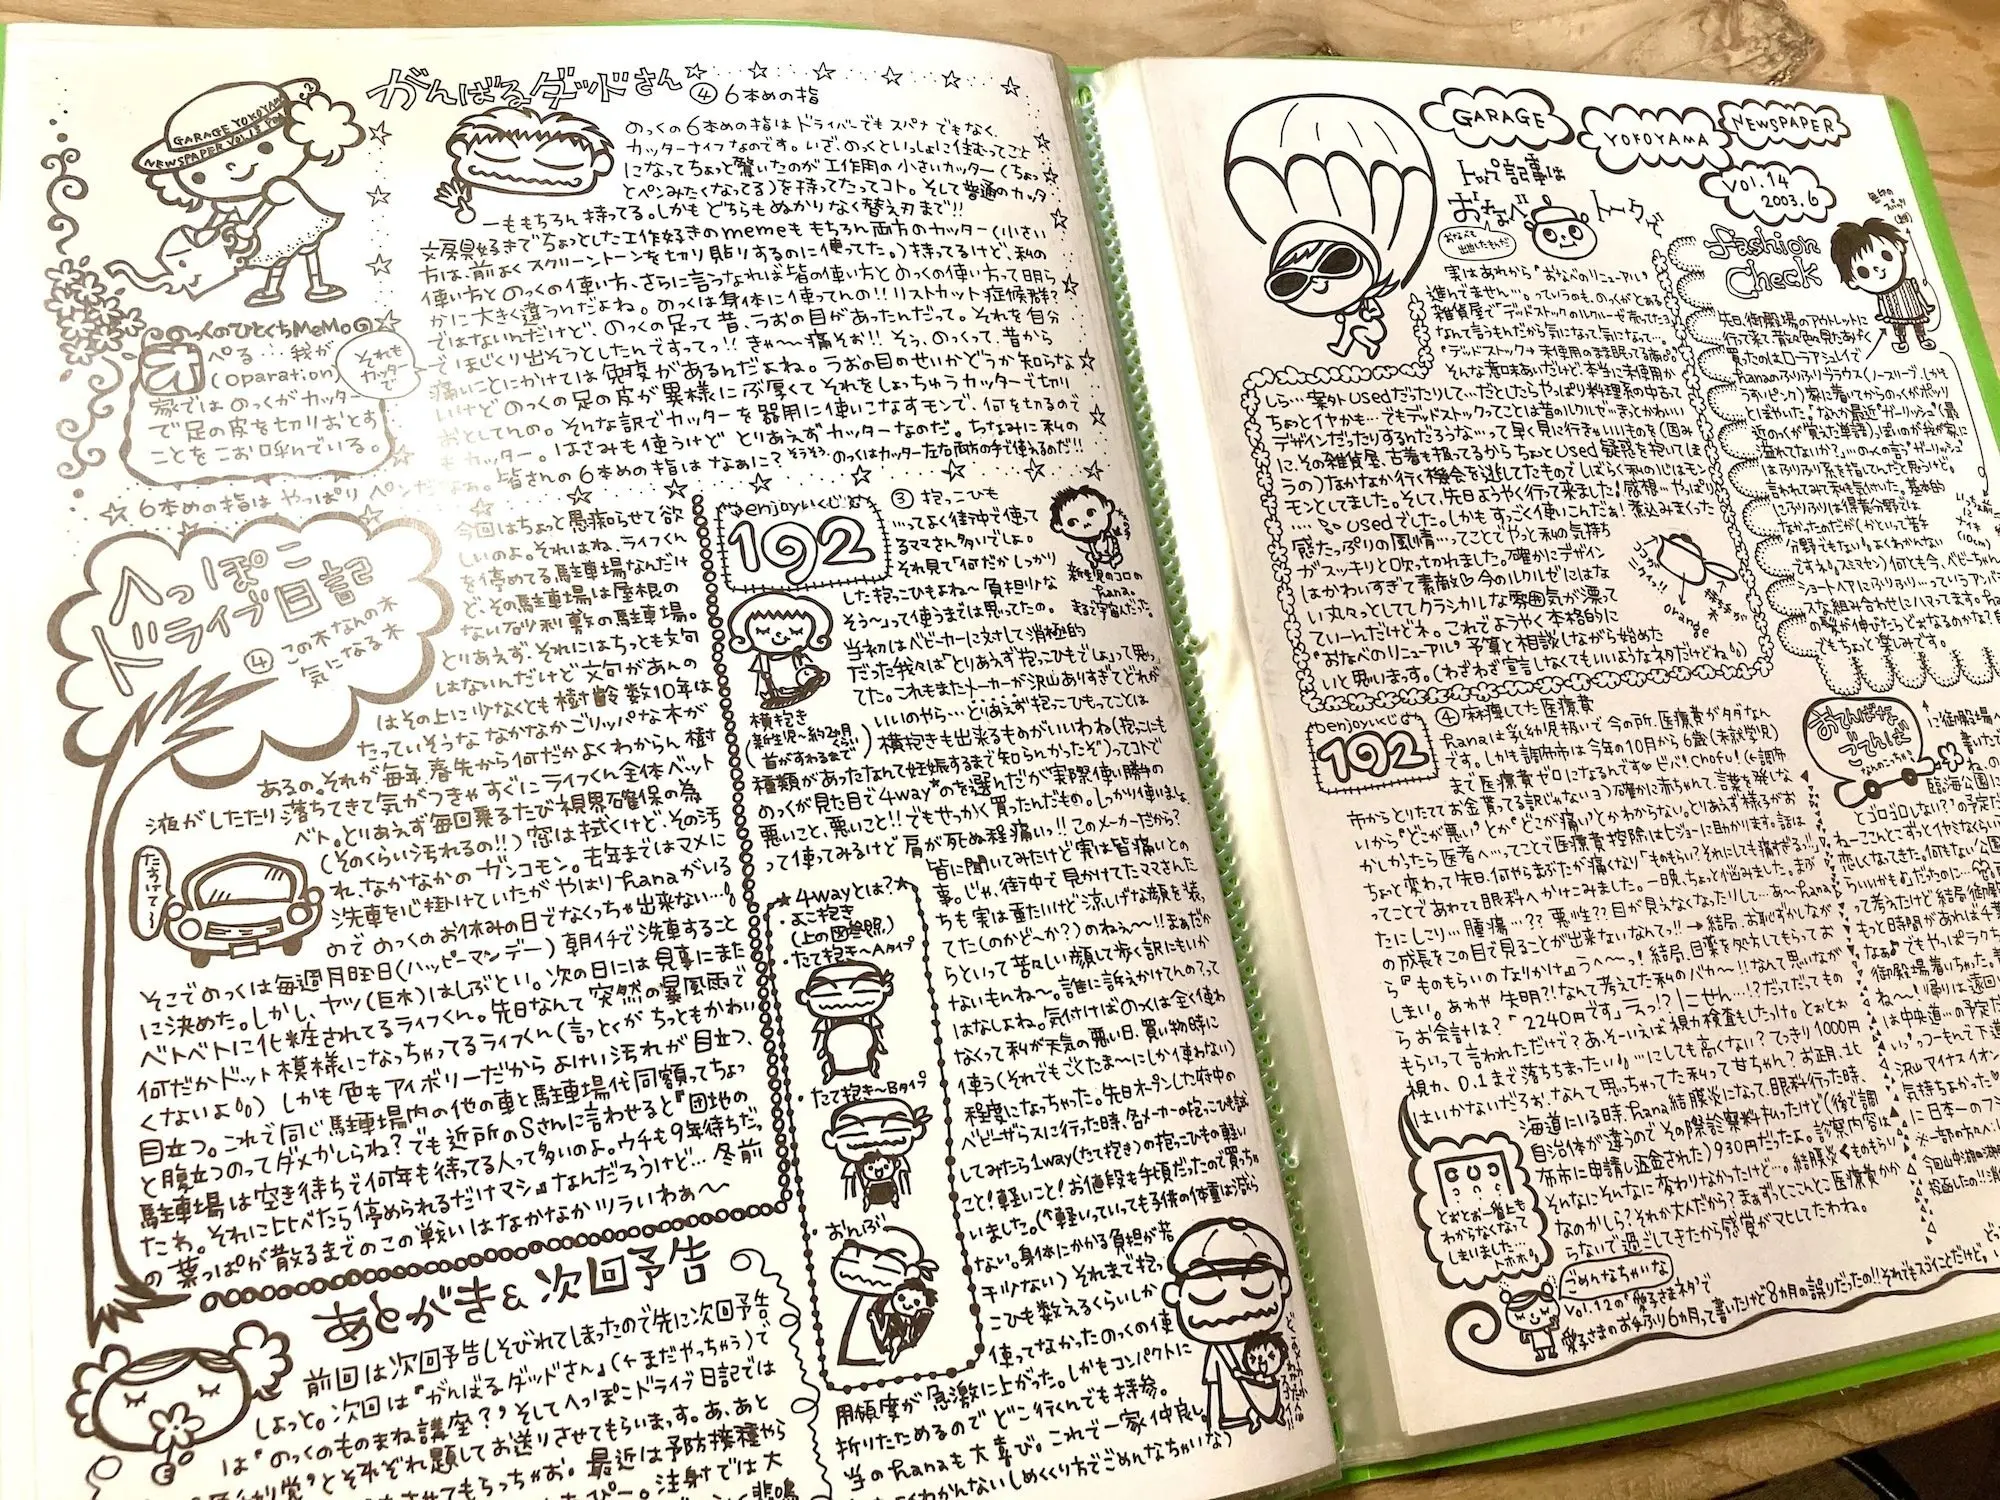 GARAGE YOKOYAMA
NEWSPAPER VOL.13 P2
がんばるダッドさん
④ 6本めの指
のっくの6本めの指はドライバーでもスパナでもなく
カッターナイフなのです。いざ、のっくといっしょに住むってこと
になってちょっと驚いたのが工作用の小さいカッター(ちょっ
とペンみたくなってる)を持ってたってコト。そして普通のカッタ
ーももちろん持ってる。しかもどちらもぬかりなく替え刃まで!!
文房具好きでちょっとした工作好きのmemeももちろん両方のカッター(小さい
方は、前よくスクリーントーンを切り貼りするのに使ってた。)持ってるけど、私の
使い方とのっくの使い方、さらに言うなれば皆の使い方とのっくの使い方って明ら
かに大きく違うんだよね。のっくは身体に使ってんの!!リストカット症候群?
ではないんだけど、のっくの足って昔、うおの目があったんだって。それを自分
でほじくり出そうとしたんですってっ!!きゃ〜痛そぉ!!そう、のっくって、昔から
痛いことにかけては免疫があるんだよね。うおの目のせいかどうか知らな
いけどのっくの足の皮が異様にぶ厚くてそれをしょっちゅうカッターで切り
おとしてんの。そんな訳でカッターを器用に使いこなすモンで、何を切るので
もカッター。はさみも使うけどとりあえずカッターなのだ。ちなみに私の
6本めの指はやっぱりペンだなぁ。皆さんの6本めの指はなあに?そうそう、のっくはカッター左右両方の手で使えるのだ!!
のっくのひとくちMeMo
オ
ぺる…我が
(oparation)
家ではのっくがカッター
で足の皮を切りおとす
ことをこお呼んでいる。
それも
カッターで
へっぽこ
ドライブ日記
④ この木なんの木
気になる木
今回はちょっと愚痴らせて欲
しいのよ。それはね、ライフくん
を停めてる駐車場なんだけ
ど、その駐車場は屋根の
ない砂利敷の駐車場。
とりあえず、それにはちっとも文句
はないんだけど文句があんの
はその上に少なくとも樹齢数10年は
たっていそうななかなかごリッパな木が
あるの。それが毎年、春先から何だかよくわからん樹
液がしたたり落ちてきて気がつきゃすぐにライフくん全体ベット
ベト。とりあえず毎回乗るたび視界確保の為
(そのくらい汚れるの!!)窓は拭くけど、その汚
れ、なかなかのガンコモン。去年まではマメに
洗車を心掛けていたがやはりhanaがいる
のでのっくのお休みの日でなくっちゃ出来ない…
そこでのっくは毎週月曜日(ハッピーマンデー)朝イチで洗車すること
に決めた。しかし、ヤツ(巨木)はしぶとい。次の日には見事にまた
ベトベトに化粧されてるライフくん。先日なんて突然の暴風雨で
何だかドット模様になっちゃってるライフくん(言っとくがちっともかわい
くないよ)しかも色もアイボリーだからよけい汚れが目立つ、
目立つ。これで同じ駐車場内の他の車と駐車場代同額ってちょっ
と腹立つのってダメかしらね?でも近所のSさんに言わせると『団地の
駐車場は空き待ちで何年も待ってる人って多いのよ。ウチも9年待ちだっ
たわ。それに比べたら停められるだけマシ』なんだろうけど…冬前
の葉っぱが散るまでのこの戦いはなかなかツライわぁ〜
たすけて〜
あとがき&次回予告
前回は次回予告しそびれてしまったので先に次回予告
しょっと。次回は『がんばるダッドさん』(←まだやっちゃう)で
は"のっくのものまね講座?"そしてへっぽこドライブ日記では
とそれぞれ題してお送りさせてもらいまっす。あ、あと
させてもらっちゃお。最近は予防接種やら
ぴー。注射では大
enjoyいくじ
192
③ 抱っこひも
…ってよく街中で使って
るママさん多いでしょ。
それ見て「何だかしっかり
した抱っこひもよね〜負担少な
そう〜」って使うまでは思ってたの。
当初はベビーカーに対して消極的
だった我々は"とりあえず抱っこひもでしょ"って思っ
てた。これもまたメーカーが沢山ありすぎてどれが
いいのやら…とりあえず抱っこひもってことは
横抱きも出来るものがいいわね(抱っこにも
種類があったなんて妊娠するまで知らんかったぞ)ってコトで
のっくが見た目で4way*のを選んだが実際使い勝手の
悪いこと、悪いこと!!でもせっかく買ったんだもの。しっかり使いましょ
って使ってみるけど肩が死ぬ程痛いっ!!このメーカーだから?
皆に聞いてみたけど実は皆痛いとの
事。じゃ、街中で見かけてたママさんた
ちも実は重たいけど涼しげな顔を装っ
てた(のかど〜か?)のねぇ〜!!まぁだか
らといって苦々しい顔して歩く訳にもいか
ないもんね〜。誰に訴えかけてんの?って
はなしよね。気付けばのっくは全く使わ
なくって私が天気の悪い日、買い物時に
使う(それでもごくたま〜にしか使わない)
程度になっちゃった。先日オープンした府中の
ベビーザらスに行った時、各メーカーの抱っこひも試
してみたら1way(たて抱き)の抱っこひもの軽い
こと!軽いこと!お値段も手頃だったので買っちゃ
いました。(↑軽いっていっても子供の体重は減ら
ない。身体にかかる負担が若
干少ない)それまで抱っ
こひも数えるくらいしか
使ってなかったのっくの使
用頻度が急激に上がった。しかもコンパクトに
折りたためるのでどこ行くんでも持参。
当のhanaも大喜び。これで一家仲良し。
わかんないしめくくり方でごめんなちゃいな)
新生児のコロの
hana。
まるで宇宙人だった。
横抱き
(新生児〜約2ヶ月くらい
首がすわるまで)
★4wayとは?★
・よこ抱き
(上の図参照。)
・たて抱き〜Aタイプ
・たて抱き〜Bタイプ
・おんぶ
GARAGE
YOKOYAMA
NEWSPAPER
VOL.14
2003.6
トップ記事は
おなべトークで
実はあれから"おなべのリニューアル"
進んでません…。っていうのも、のっくがとある
雑貨屋で"デッドストックのルクルーゼ売ってたヨ"
なんて言うもんだから気になって、気になって…。
"デッドストック→未使用のまま眠ってる商品。
そんな意味あいだけど、本当に未使用か
しら…案外usedだったりして…だとしたらやっぱり料理系の中古って
ちょっとイヤかも…でもデッドストックってことは昔のルクルーゼ…きっとかわいい
デザインだったりするんだろうな…って早く見に行きゃいいものを(因み
に、その雑貨屋、古着も扱ってるからちょっとused疑惑を抱いてしま
うの)なかなか行く機会を逃してたものでしばらく私の心はモン
モンとしてました。そして、先日ようやく行って来ました!感想…やっぱり
usedでした。しかもすっごく使いこんだぁ!煮込みまくった
感たっぷりの風情…ってことでやっと私の気持ち
がスッキリと吹っ切れました。確かにデザイン
はかわいすぎて素敵♡今のルクルゼにはな
い丸々っとしててクラシカルな雰囲気が漂って
ていーんだけどネ。これでようやく本格的に
"おなべのリニューアル"予算と相談しながら始めた
いと思いまっす。(わざわざ宣言しなくてもいいようなネタだけどね)
orange
fashion
Check
先日、御殿場のアウトレットに
行って来て散々色々見たあげく
買ったのはローラアシュレイで
hanaのふりふりブラウス(ノースリーブ。しかも
うすいピンク)家に着いてからのっくがボッソリ
とぼやいた。"なんか最近"ガーリッシュ"(最
近のっくが覚えた単語)っぽいのが我が家に
溢れてないか?"…のっくの言う"ガーリッシュ"
はふりふり系を指してんだと思うけど。
言われてみて私も気付いた。基本的
にふりふりは得意分野では
なかったのだが(かといって苦手
分野でもない。よくわからない
ですよね。スマセン)何とも今、ベビーちゃん
ショートヘアにふりふり…っていうアンバ
スな組み合わせにハマってます。ha
の髪が伸びたらどおなるのかな?
でもちょっと楽しみです。
enjoyいくじ
192
④ 麻痺してた医療費
hanaは乳幼児扱いで今の所、医療費がタダなん
です。しかも調布市は今年の10月から6歳(未就学児)
まで医療費ゼロになるんです♡ビバ!Chofu!(←調布
市からとりたててお金貰ってる訳じゃないヨ)確かに赤ちゃんて、言葉を発しな
いから"どこが悪い"とか"どこが痛い"とかわからない。とりあえず様子がお
かしかったら医者へ…ってことで医療費控除はヒジョーに助かります。話は
ちょっと変わって先日、何やらまぶたが痛くなり「ものもらい?それにしても痛すぎるっ!!」
ってことであわてて眼科へかけこみました。一晩、ちょっと悩みました。まぶ
たにしこり…腫瘍…??悪性??目が見えなくなったりして…あ〜hana
の成長をこの目で見ることが出来ないなんてっ!!→結局、お恥ずかしなが
ら『ものもらいのなりかけ』うへ〜っ!結局、目薬を処方してもらってお
しまい。あわや"失明?!"なんて考えてた私のバカ〜!!なんて思いなが
らお会計は?「2240円です」ラっ!?にせん…!?だってだってもの
もらいって言われただけで?あ、そーいえば視力検査もしたっけ。とぉとぉ
視力、0.1まで落ちちまったい。…にしても高くない?てっきり1000円
はいかないだろぉ、なんて思っちゃってた私って甘ちゃん?お正月、北
海道にいる時、hana結膜炎になって、眼科行った時、
自治体が違うのでその際診察料払ったけど(後で調
布市に申請し返金された)930円だったよ。診察内容は
そんなにそんなに変わりなかったけど…。結膜炎くものもらい
なのかしら?それか大人だから?まぁずっとこんとこ医療費かか
らないで過ごしてきたから感覚がマヒしてたわね。
とおとお一番上も
わからなくなって
しまいました…
トホホ。
ごめんなちゃいな
Vol.12の"愛子さまネタ"で
愛子さまのお手ふり6カ月って書いたけど8カ月の誤りだったの!!それでもスゴイことだけど。
おてんばな
ごてんば
なんのこっちゃ?